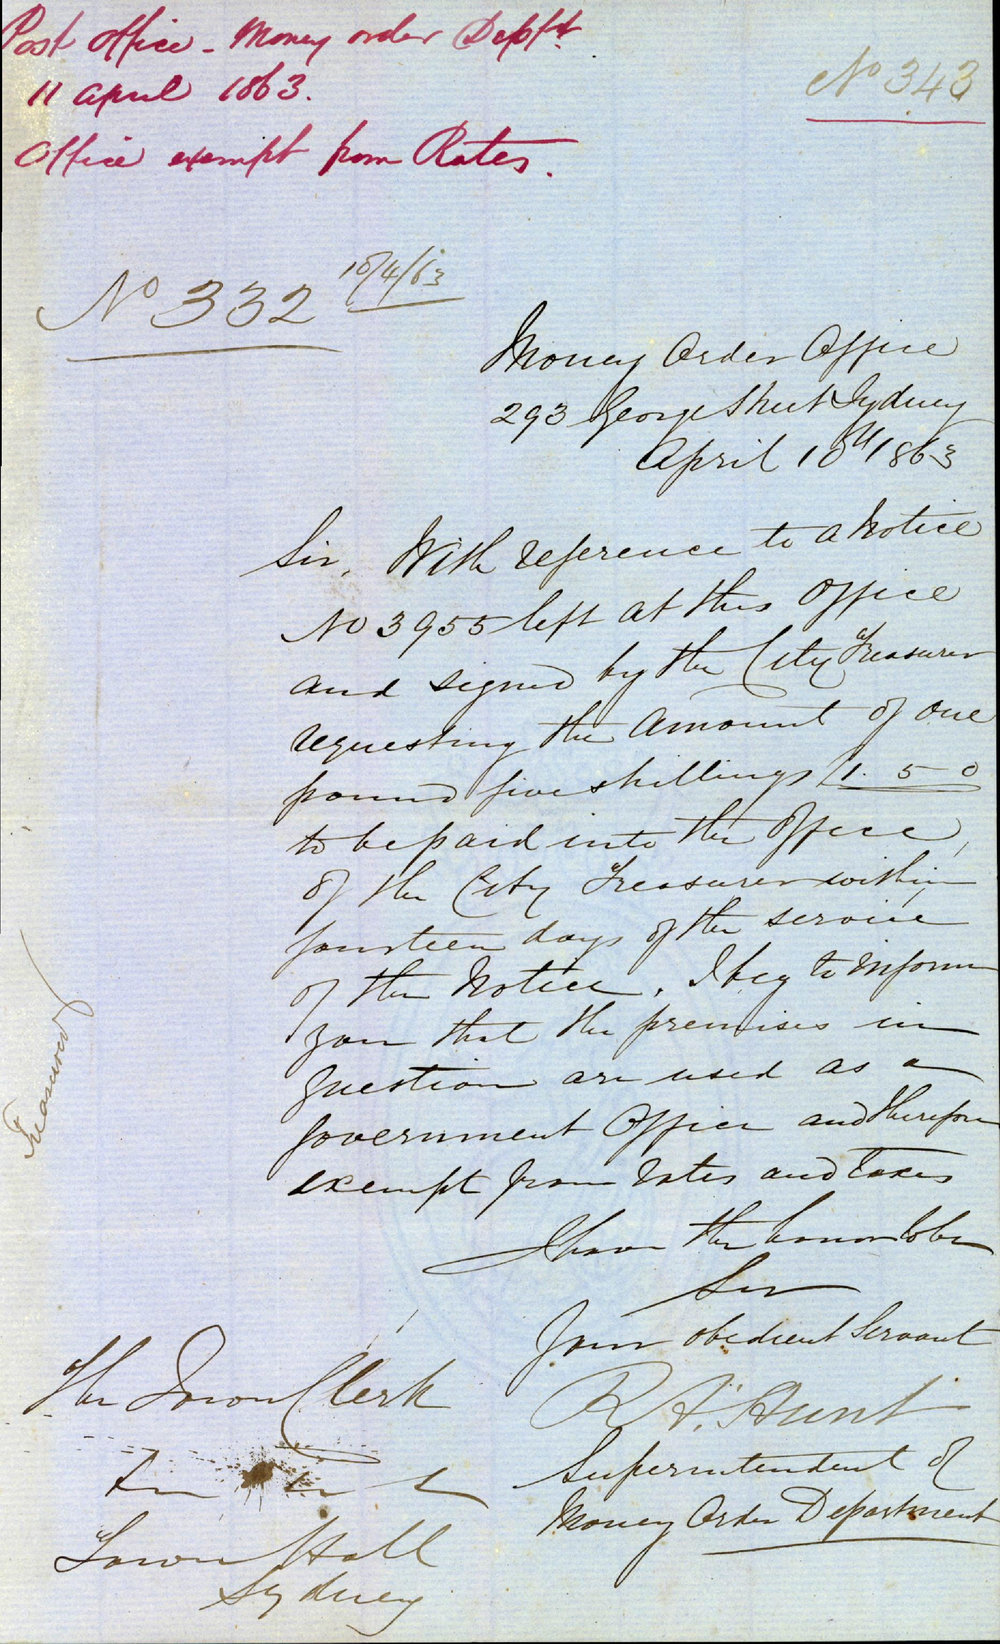 Post Office - Money order Deptt.
11 April 1863.
Office exempt from Rates.
No 343
No 332 10/4/63
Money Order Office
293 George Street Sydney
April 10th 1863
Sir, With reference to a Notice
No 3955 left at this Office
and signed by the City Treasurer
requesting the amount of one
pound five shillings 1. 5 - 0
to be paid into the Office
of the City Treasurer within
fourteen days of the service
of the Notice, I beg to inform
you that the premises in
question are used as a
Government Office and therefore
exempt from rates and taxes
I have the honor to be
Sir
Your obedient Servant
R A. Hunt
Superintendent of
Money Order Department
The Town Clerk
Town Hall
Sydney
Treasurer